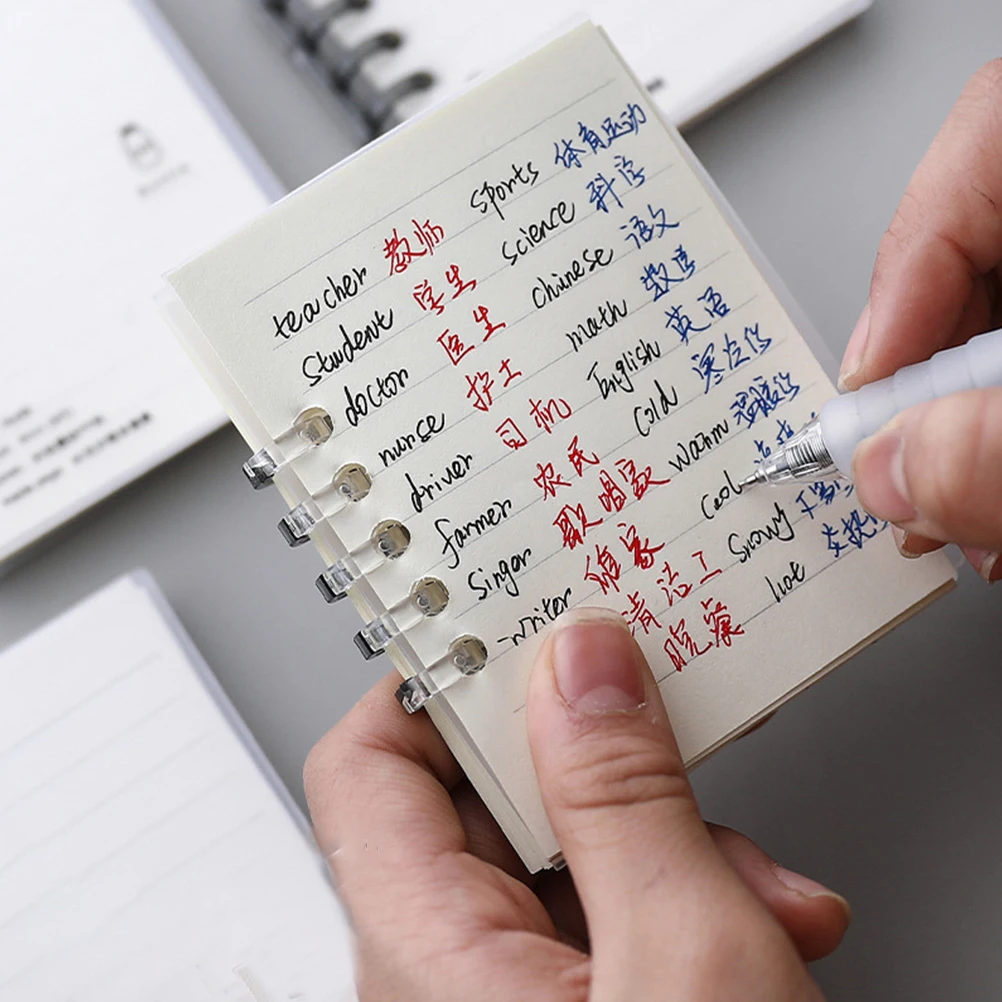 teacher 教师 sports 体育运动
student 学生 science 科学
doctor 医生 chinese 语文
nurse 护士 math 数学
driver 司机 English 英语
farmer 农民 cold 寒冷的
singer 歌唱家 warm 温暖的
-writer 作家 cool
清洁工 snowy
hot 炎热